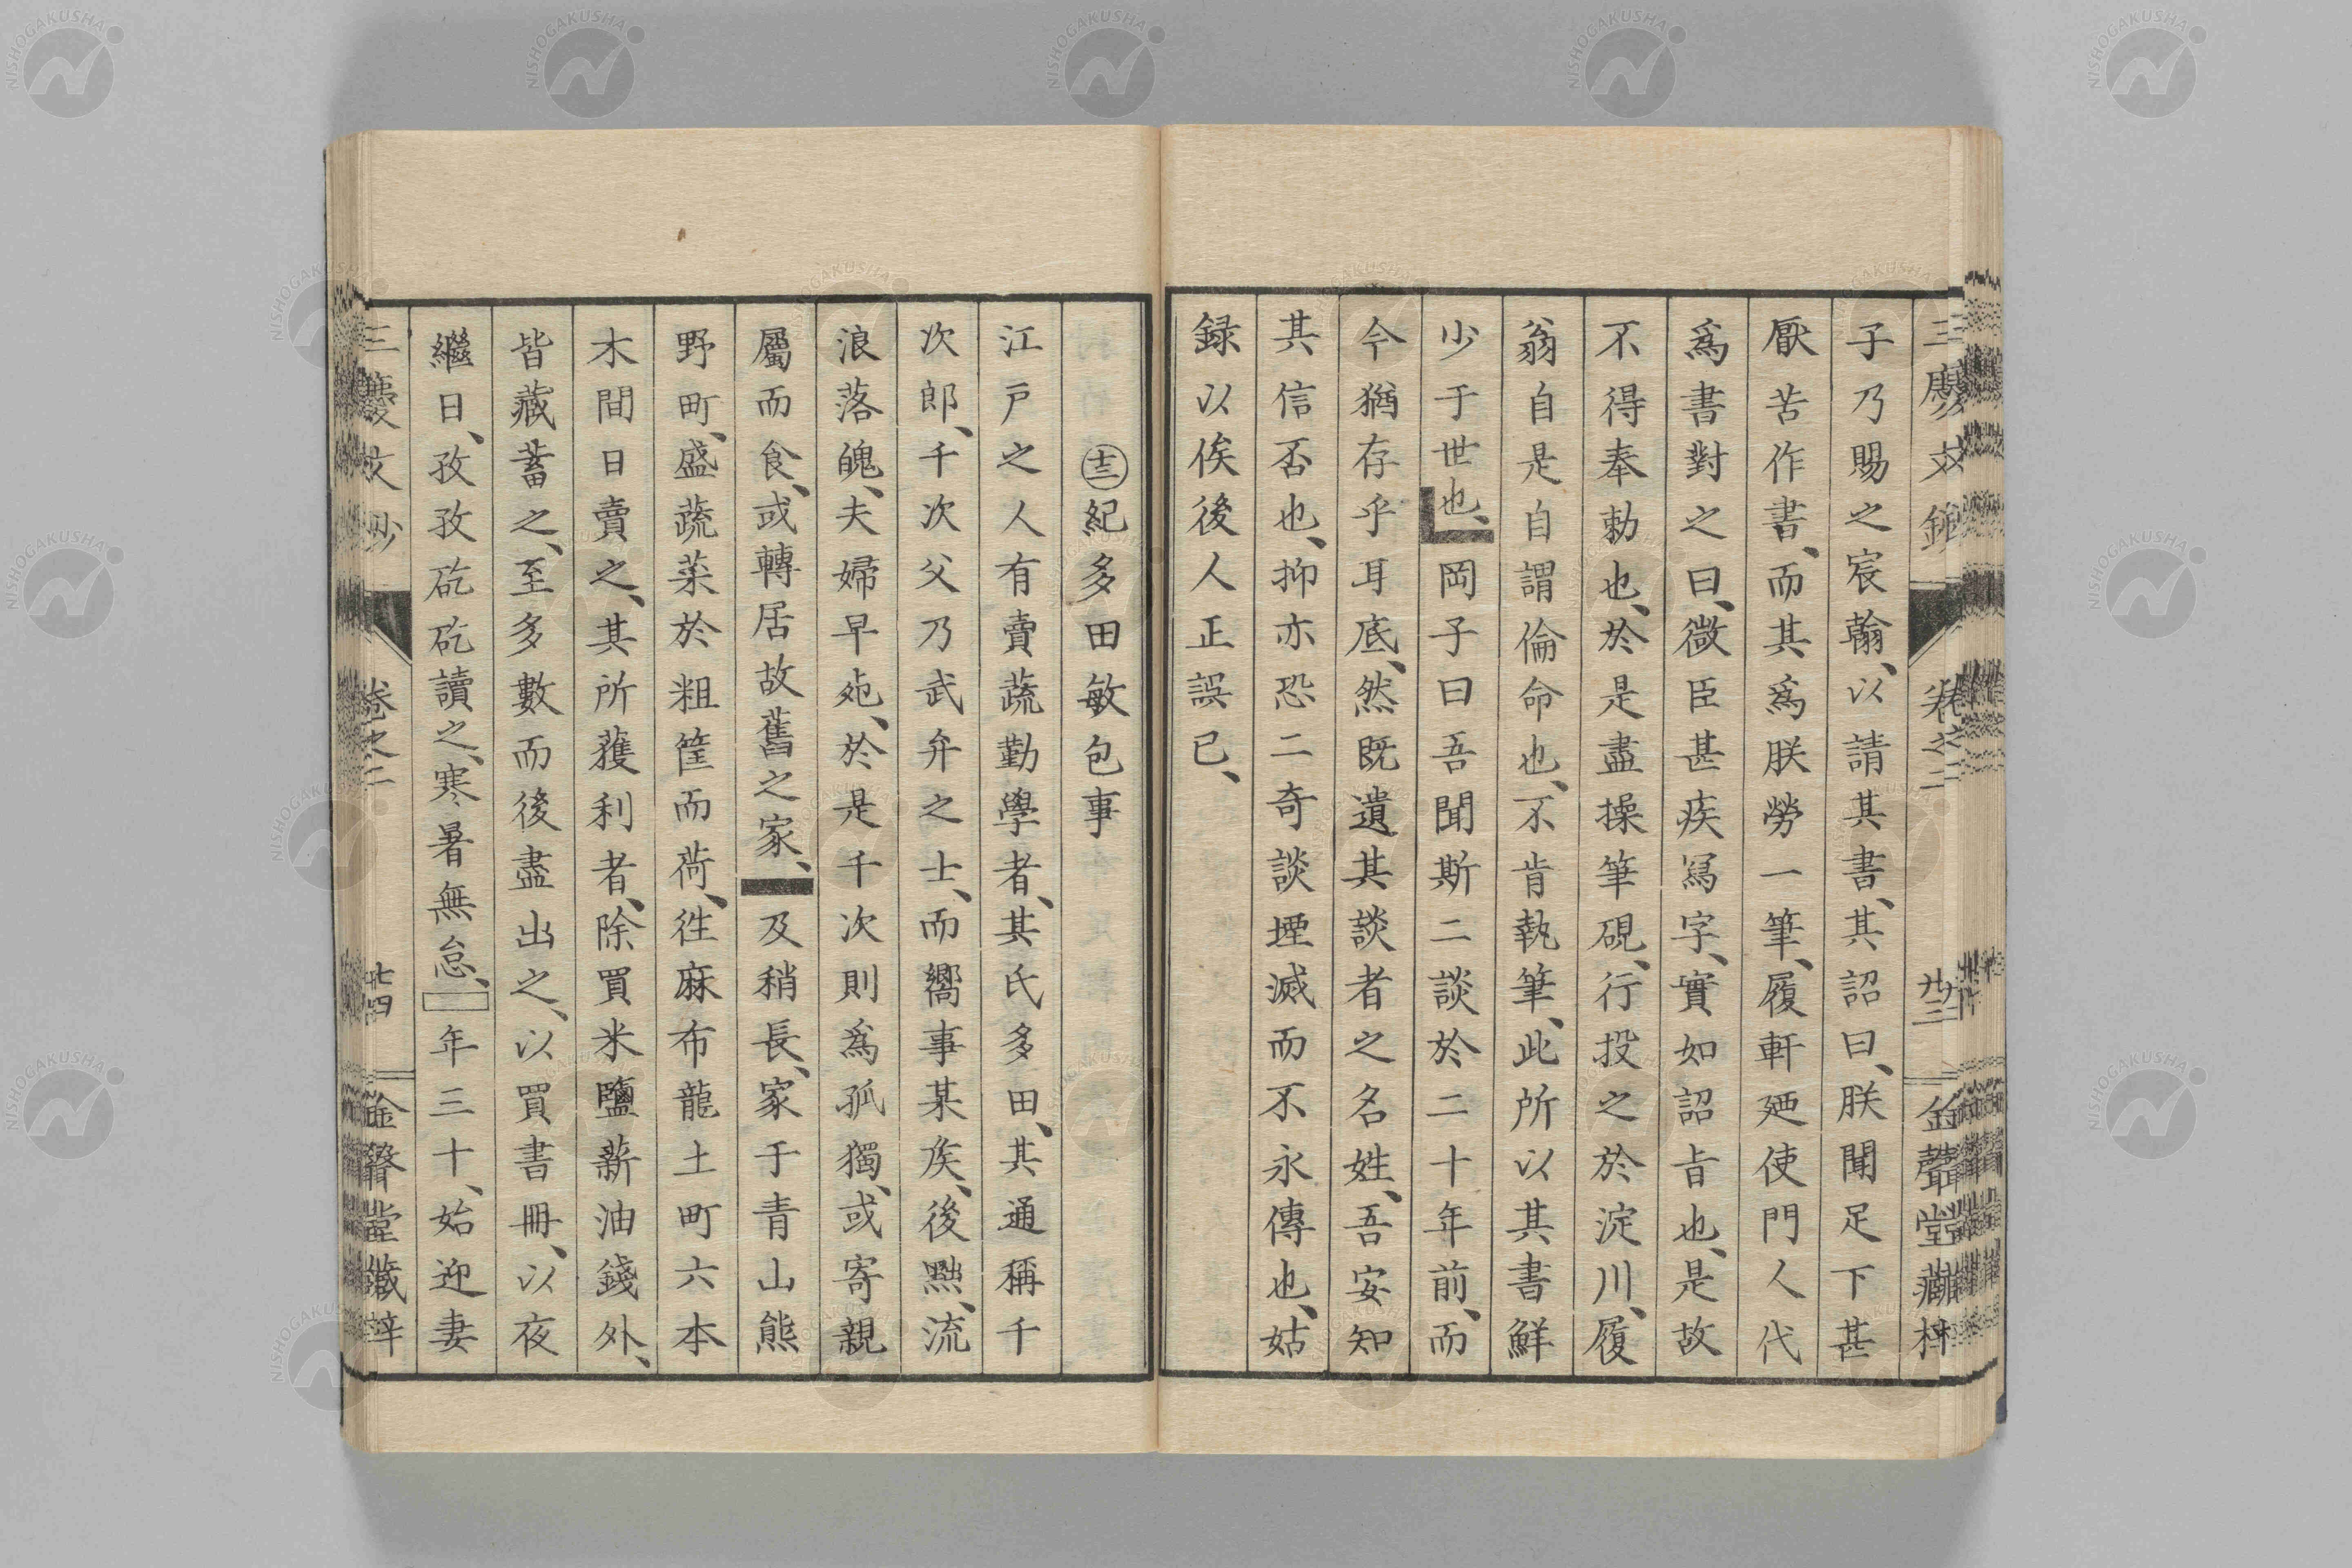 三慶文鈔 卷之二 廿三 金聲堂藏梓
子乃賜之宸翰、以請其書、其詔曰、朕聞足下甚
厭苦作書、而其爲朕勞一筆、履軒廼使門人代
爲書對之曰、微臣甚疾寫字、實如詔旨也、是故
不得奉勅也、於是盡操筆硯、行投之於淀川、履
翁自是自謂倫命也、不肯執筆、此所以其書鮮
少于世也、岡子曰吾聞斯二談於二十年前、而
今猶存乎耳底、然既遺其談者之名姓、吾安知
其信否也、抑亦恐二奇談堙滅而不永傳也、姑
録以俟後人正誤已、
㊂紀多田敏包事
江戸之人有賣蔬勤學者、其氏多田、其通稱千
次郎、千次父乃武弁之士、而嚮事某矦、後黜、流
浪落魄、夫婦早死、於是千次則爲孤獨、或寄親
屬而食、或轉居故舊之家、及稍長、家于青山熊
野町、盛蔬菜於粗筐而荷、往麻布龍土町六本
木間日賣之、其所獲利者、除買米鹽薪油錢外、
皆藏蓄之、至多數而後盡出之、以買書冊、以夜
繼日、孜孜矻矻讀之、寒暑無怠、年三十、始迎妻
三慶文鈔 卷之二 廿四 金聲堂藏梓
NISHOGAKUSHA